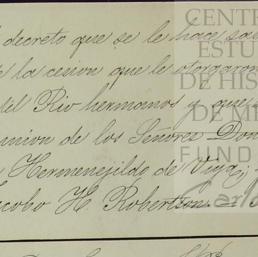 decreto que se le hace sa
de la cesion que le otorgaron
del Rio hermanos y que s
union de los Señores Don
Hermenejildo de Viya;
Jacobo H Robertson
CENT
ESTU
DE HIS
DE ME
FUND
Carl